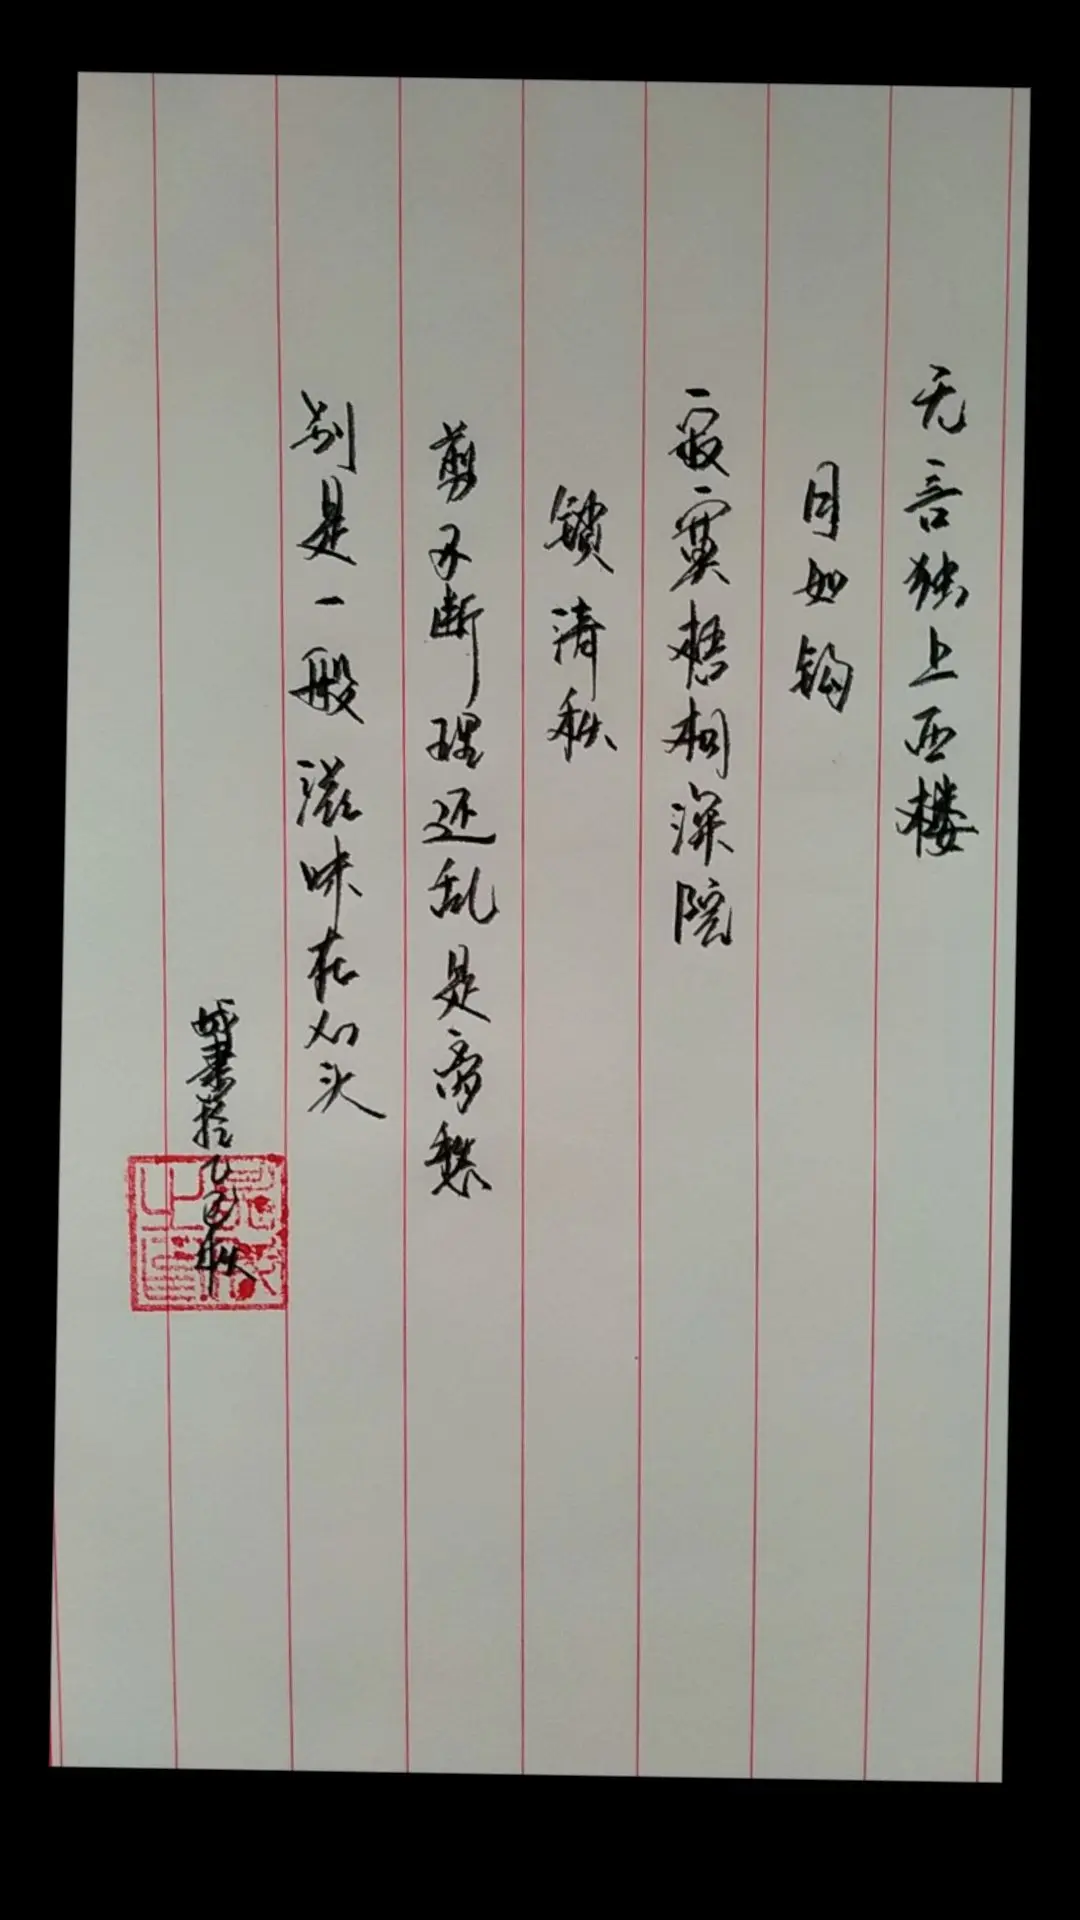 无言独上西楼
月如钩
寂寞梧桐深院
锁清秋
剪不断理还乱是离愁
别是一般滋味在心头
城书于乙巳秋